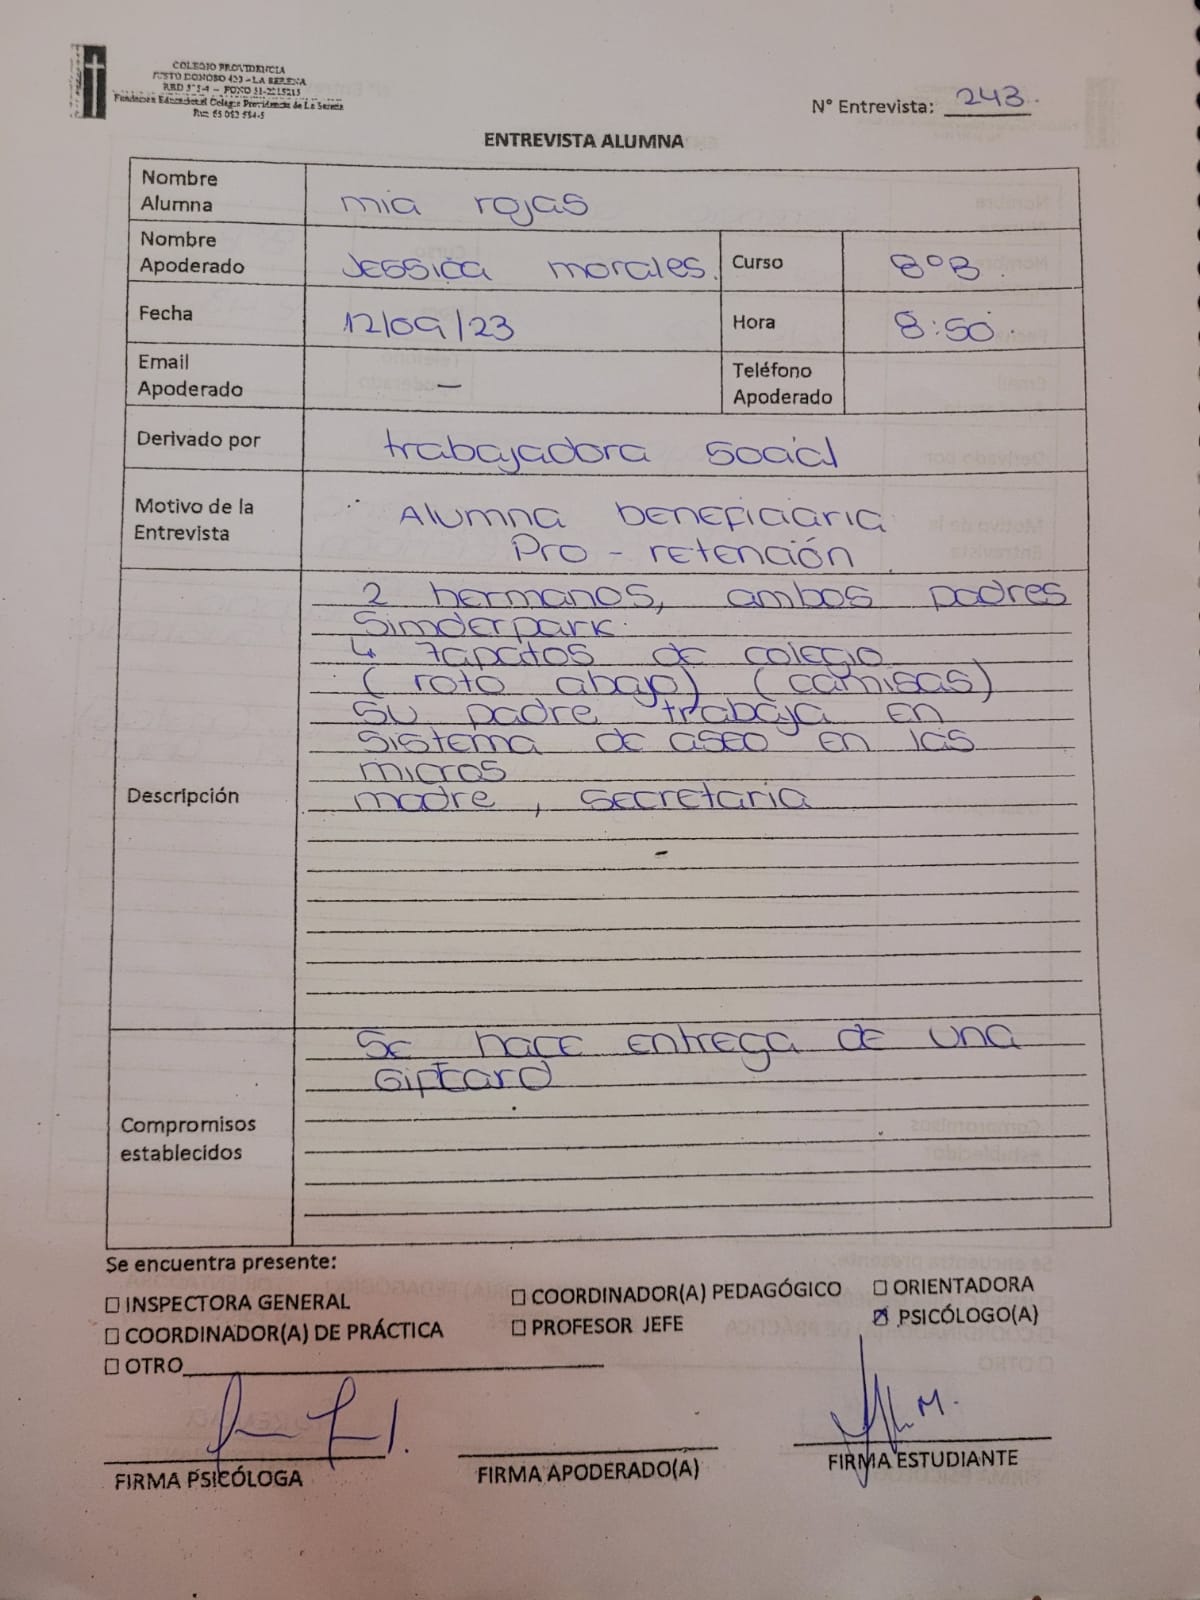 COLEGIO PROVIDENCIA
JUSTO DONOSO 420 - LA SERENA
Fundacion Educacional Colegio Providencia de La Serena
N° Entrevista: 243.
ENTREVISTA ALUMNA
Nombre Alumna
mia rojas
Nombre Apoderado
Jessica morales.
Curso
8°B
Fecha
12/09/23
Hora
8:50
Email Apoderado
-
Teléfono Apoderado
Derivado por
trabajadora social
Motivo de la Entrevista
Alumna beneficiaria
Pro - retención
Descripción
2 hermanos, ambos padres
Simderpark.
↳ zapatos de colegio
(roto abajo) (camisas)
su padre trabaja en
sistema de aseo en las
micros
madre, secretaria
Compromisos establecidos
Se hace entrega de una
Giftcard
Se encuentra presente:
☐ INSPECTORA GENERAL
☐ COORDINADOR(A) PEDAGÓGICO
☐ ORIENTADORA
☐ COORDINADOR(A) DE PRÁCTICA
☐ PROFESOR JEFE
☒ PSICÓLOGO(A)
☐ OTRO
M.
FIRMA PSICÓLOGA
FIRMA APODERADO(A)
FIRMA ESTUDIANTE